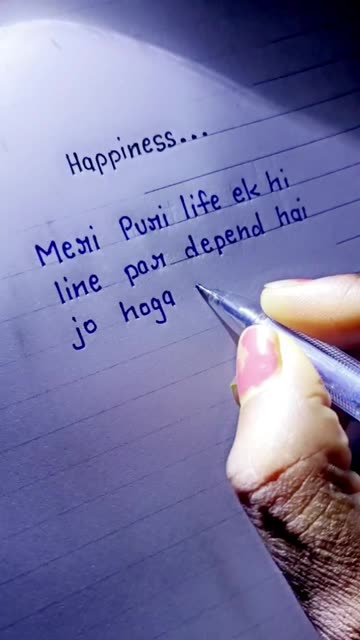 Happiness...
Meri Puri life ek hi
line par depend hai
jo hoga